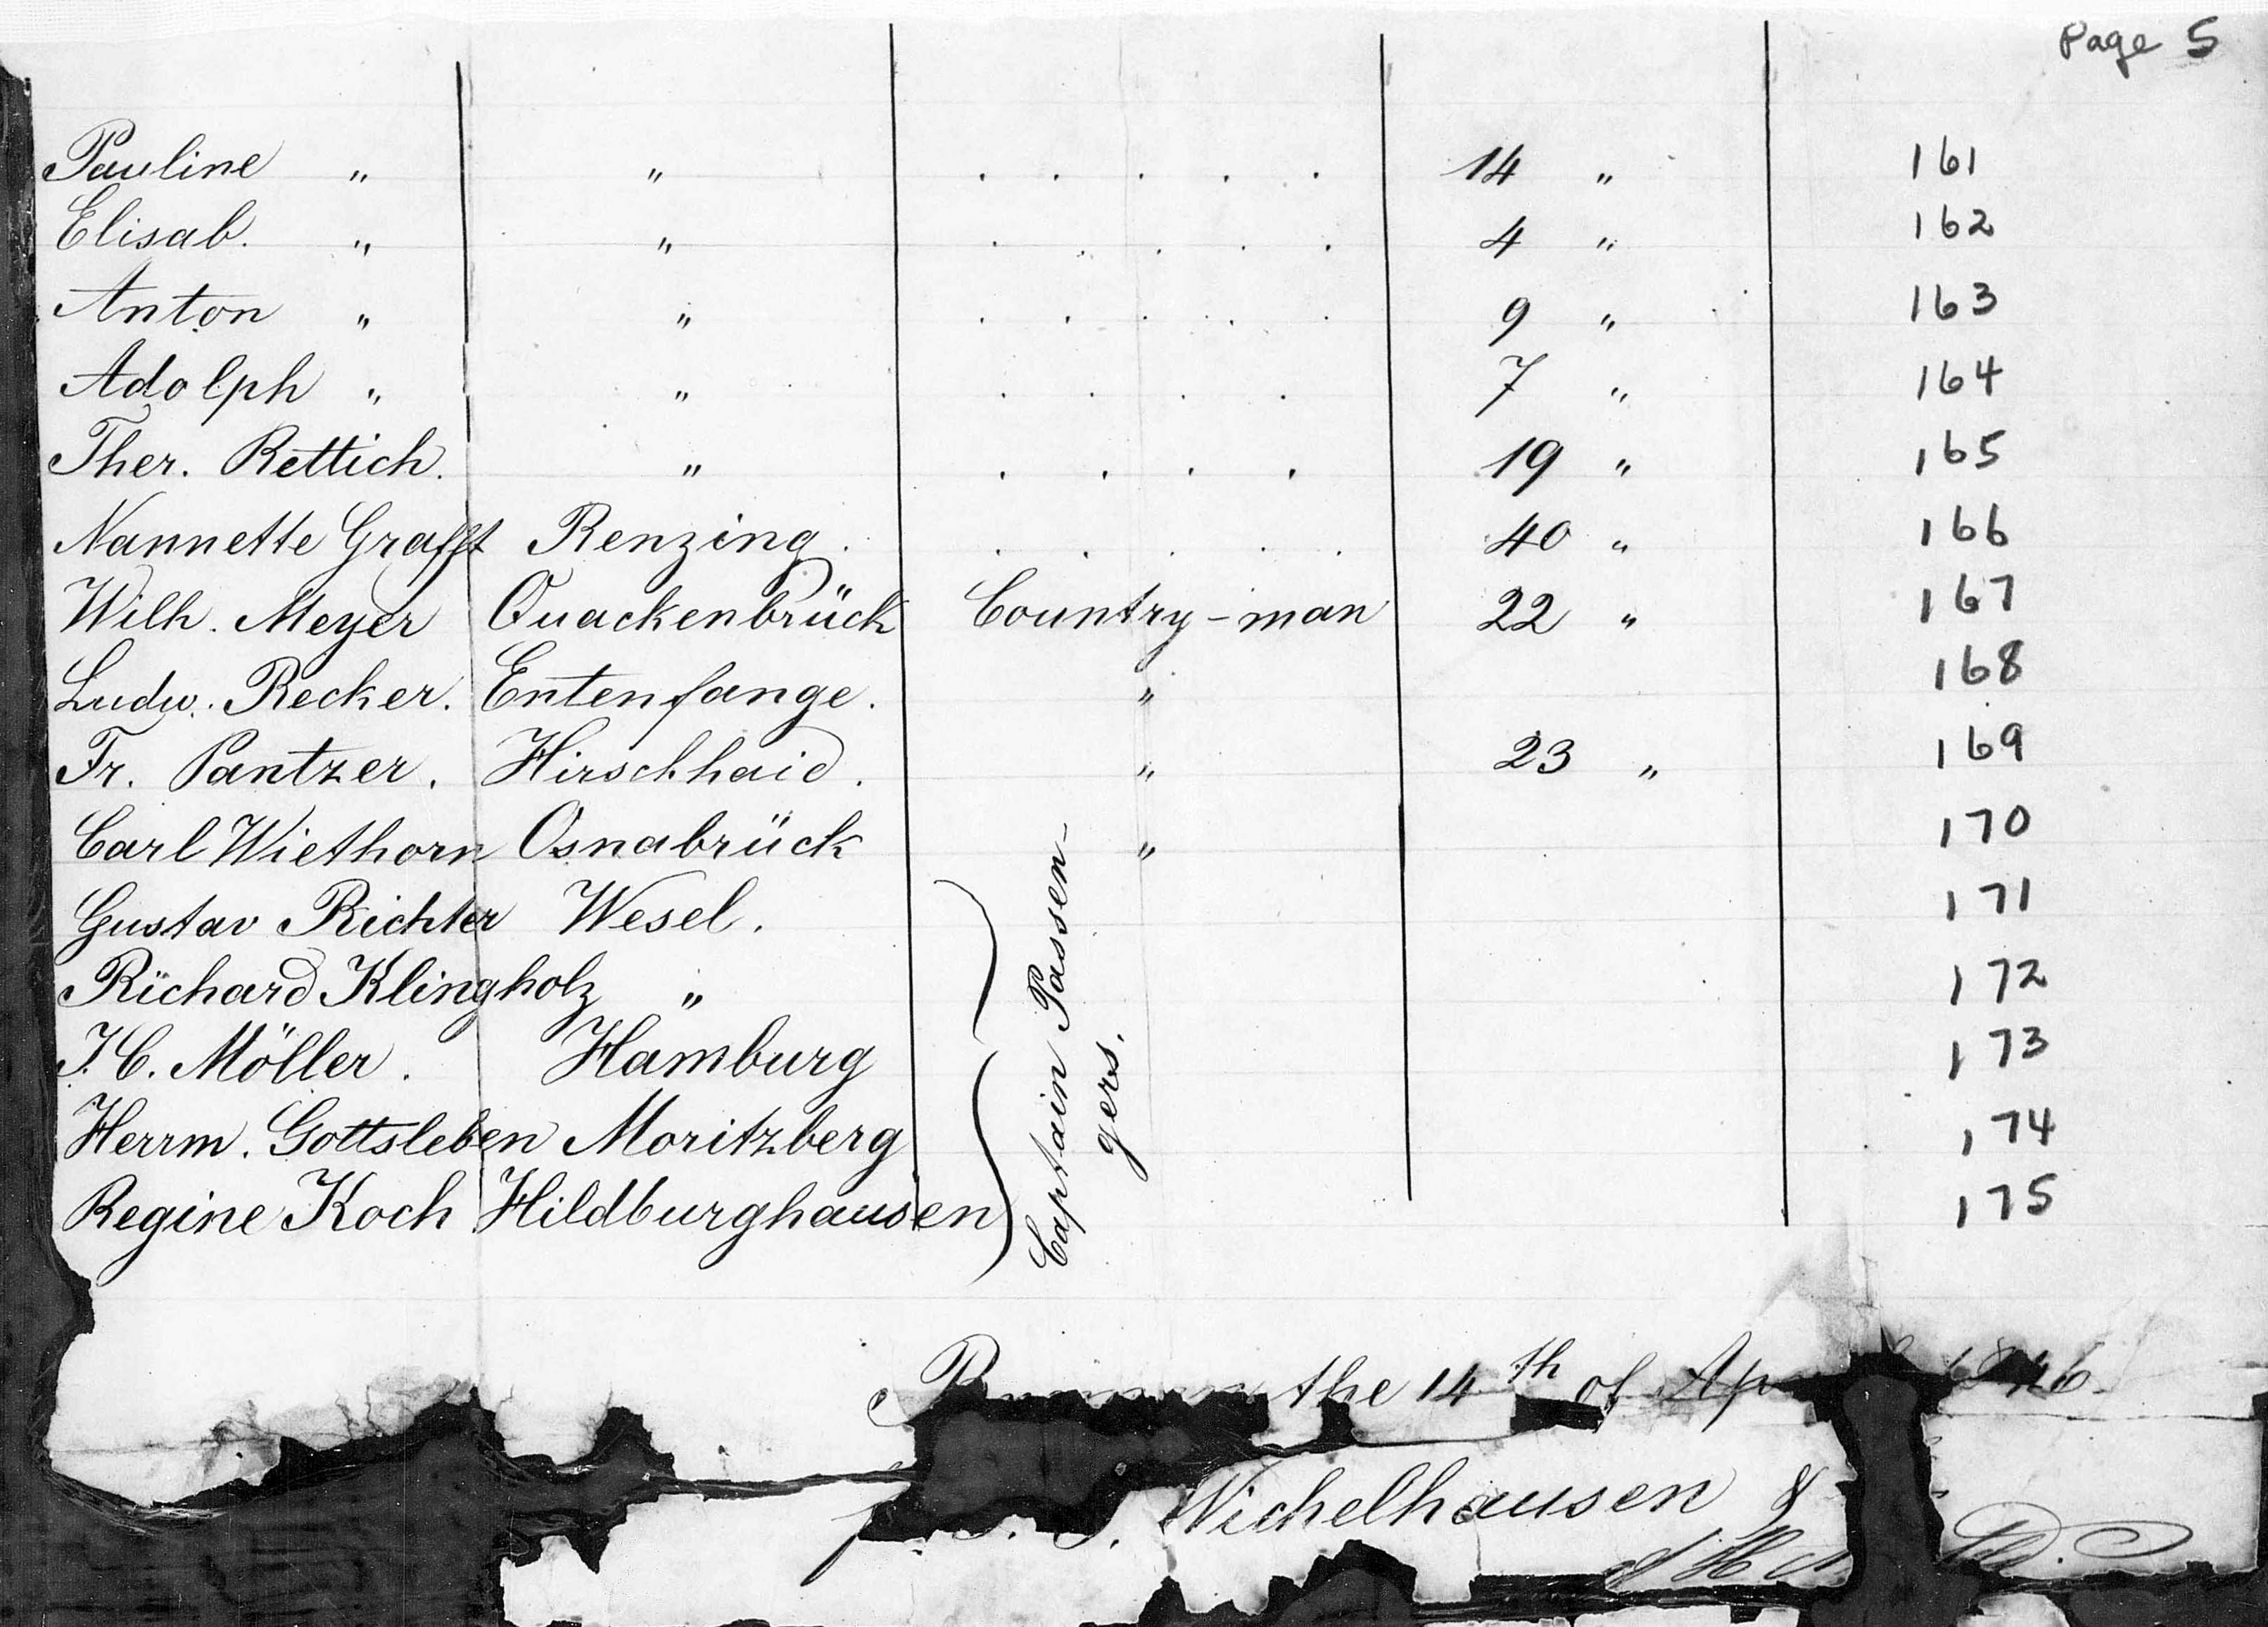 Page 5
Pauline " " . . . . . 14 " 161
Elisab. " " . . . . . 4 " 162
Anton " " . . . . . 9 " 163
Adolph " " . . . . 7 " 164
Ther. Rettich. " . . . . 19 " 165
Nannette Grafft Renzing. . . . . . 40 " 166
Wilh. Meyer Quackenbrück Country-man 22 " 167
Ludw. Recker. Entenfange. " 168
Fr. Pantzer. Hirschhaid. " 23 " 169
Carl Wiethorn Osnabrück " 170
Gustav Richter Wesel. 171
Richard Klingholz " 172
J. C. Möller. Hamburg 173
Herrm. Gottsleben Moritzberg 174
Regine Koch Hildburghausen 175
Captain Passen-
gers.
the 14th of Ap 1846.
Wichelhausen &